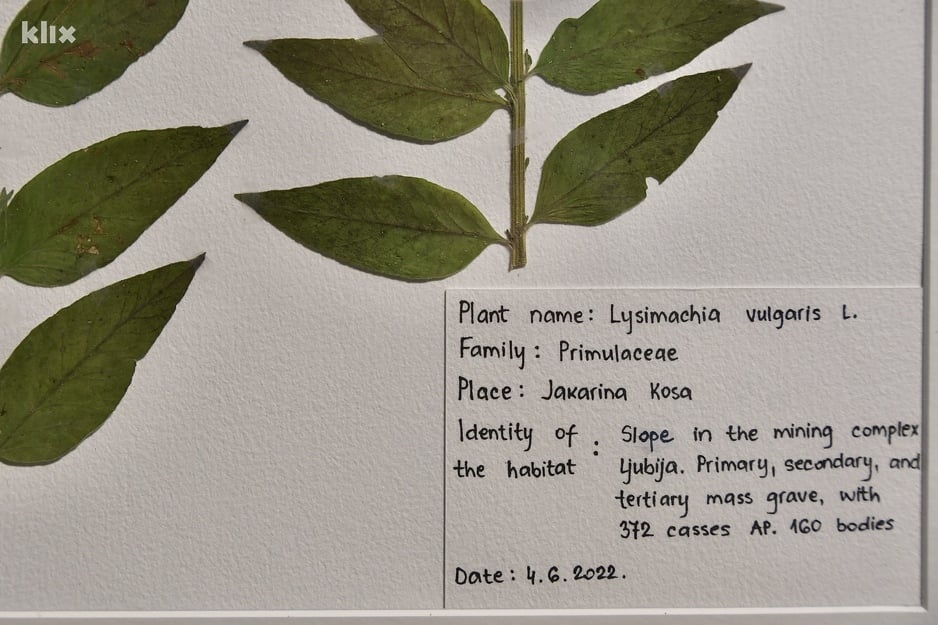 klix
Plant name: Lysimachia vulgaris L.
Family: Primulaceae
Place: Jakarina Kosa
Identity of the habitat : Slope in the mining complex
Ljubija. Primary, secondary, and
tertiary mass grave, with
372 casses AP. 160 bodies
Date: 4.6.2022.